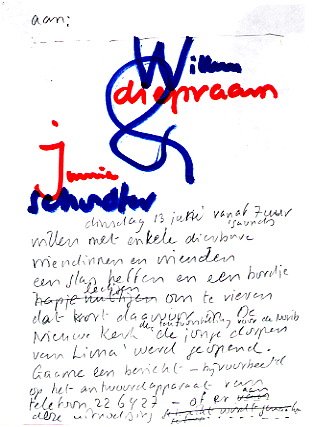 aan:
Willem
diepraam
&
jannie
schroder
dinsdag 13 juni vanaf 7 uur
's avonds
willen met enkele dierbare
vriendinnen en vrienden
een glas heffen en een bordje
leegeten
om te vieren
dat kort daarvoor in De
de tentoonstelling voor de
Nieuwe Kerk 'de jonge
van Lima' werd geopend.
Gaarne een bericht - bijvoorbeeld
op het antwoordapparaat van
telefoon 22 64 27 - of er aan
deze uitnodiging